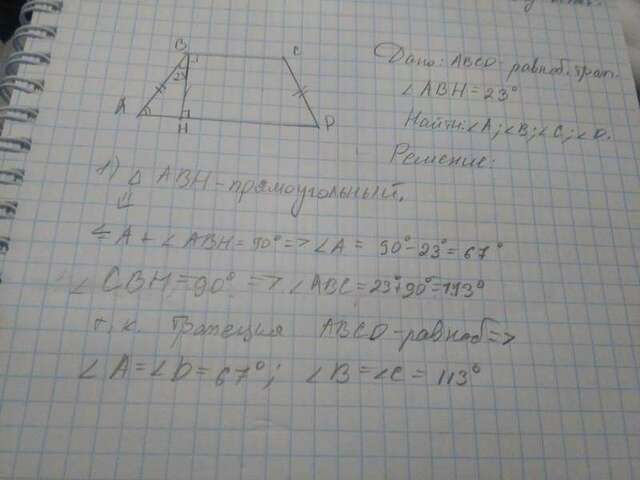 B
C
23
A
H
D
Дано: ABCD - равноб. трап.
∠ABH = 23°
Найти: ∠A; ∠B; ∠C; ∠D.
Решение:
1) △ ABH - прямоугольный.
⇓
∠A + ∠ABH = 90° => ∠A = 90° - 23° = 67°
∠CBH = 90° => ∠ABC = 23° + 90° = 113°
т.к. трапеция ABCD - равноб =>
∠A = ∠D = 67°; ∠B = ∠C = 113°